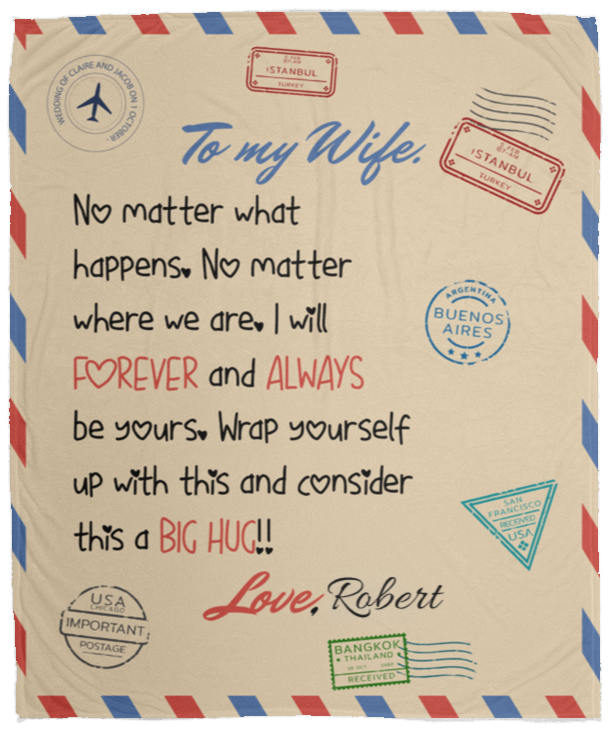 WEDDING OF CLAIRE AND JACOB ON 1 OCTOBER -
ISTANBUL
TURKEY
ISTANBUL
TURKEY
To my Wife.
No matter what
happens. No matter
where we are. I will
FOREVER and ALWAYS
be yours. Wrap yourself
up with this and consider
this a BIG HUG!!
Love, Robert
ARGENTINA
BUENOS
AIRES
SAN
FRANCISCO
RECEIVED
USA
USA
CHICAGO
IMPORTANT
POSTAGE
BANGKOK
THAILAND
RECEIVED